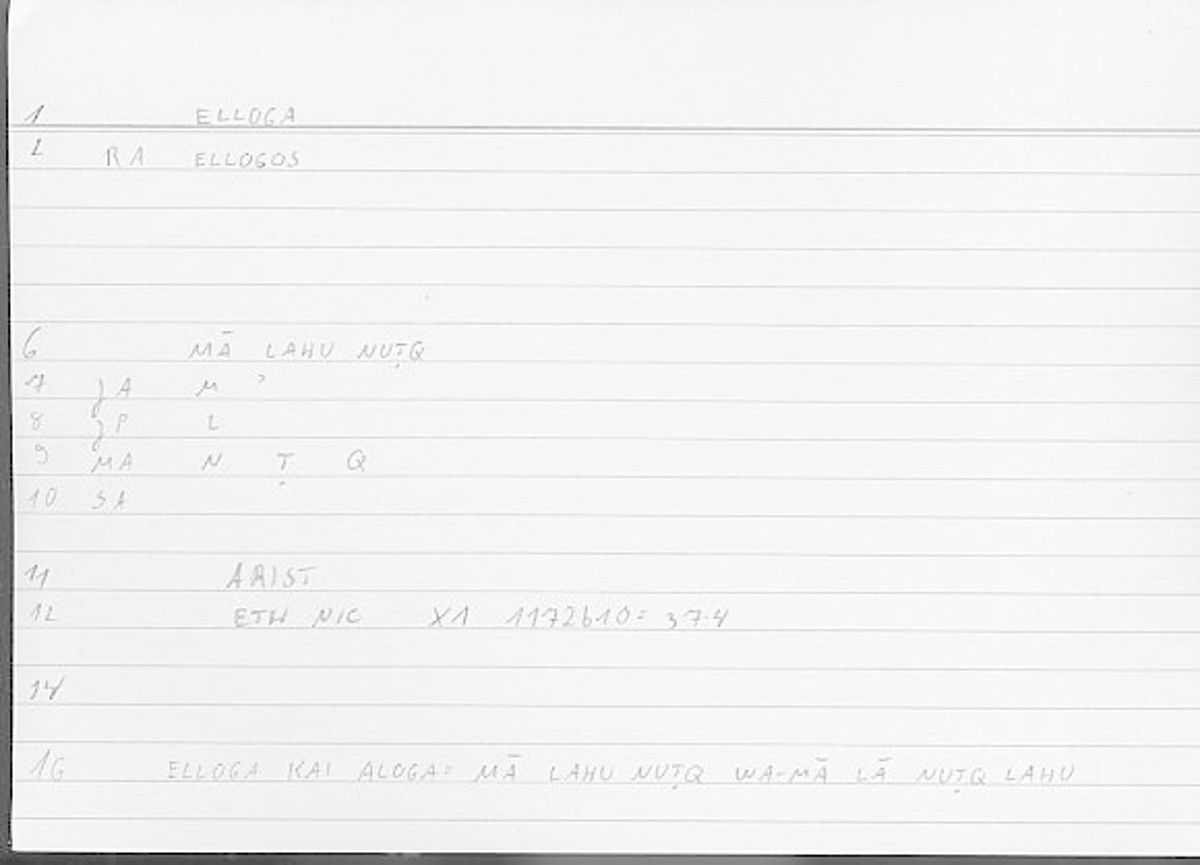 1 ELLOGA
2 RA ELLOGOS
6 MĀ LAHU NUṬQ
7 JA M ʾ
8 JP L
9 MA N Ṭ Q
10 SA
11 ARIST
12 ETH NIC X1 1172b10= 37.4
14
16 ELLOGA KAI ALOGA= MĀ LAHU NUṬQ WA-MĀ LĀ NUṬQ LAHU